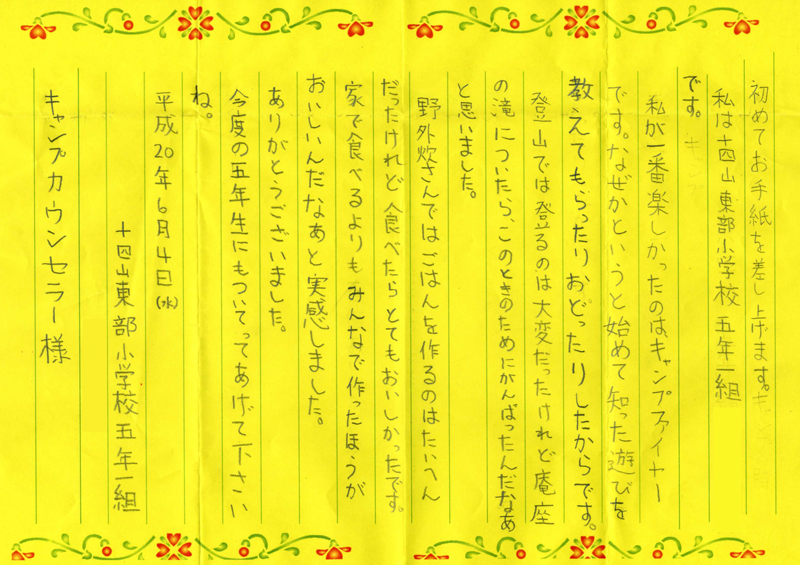 初めてお手紙を差し上げます。
私は十四山東部小学校 五年一組
です。
私が一番楽しかったのはキャンプファイヤー
です。なぜかというと始めて知った遊びを
教えてもらったりおどったりしたからです。
登山では登るのは大変だったけれど庵座
の滝についたら、このときのためにがんばったんだなあ
と思いました。
野外炊さんではごはんを作るのはたいへん
だったけれど食べたらとてもおいしかったです。
家で食べるよりもみんなで作ったほうが
おいしいんだなあと実感しました。
ありがとうございました。
今度の五年生にもついてってあげて下さい
ね。
平成20年6月4日(水)
十四山東部小学校五年一組
キャンプカウンセラー様